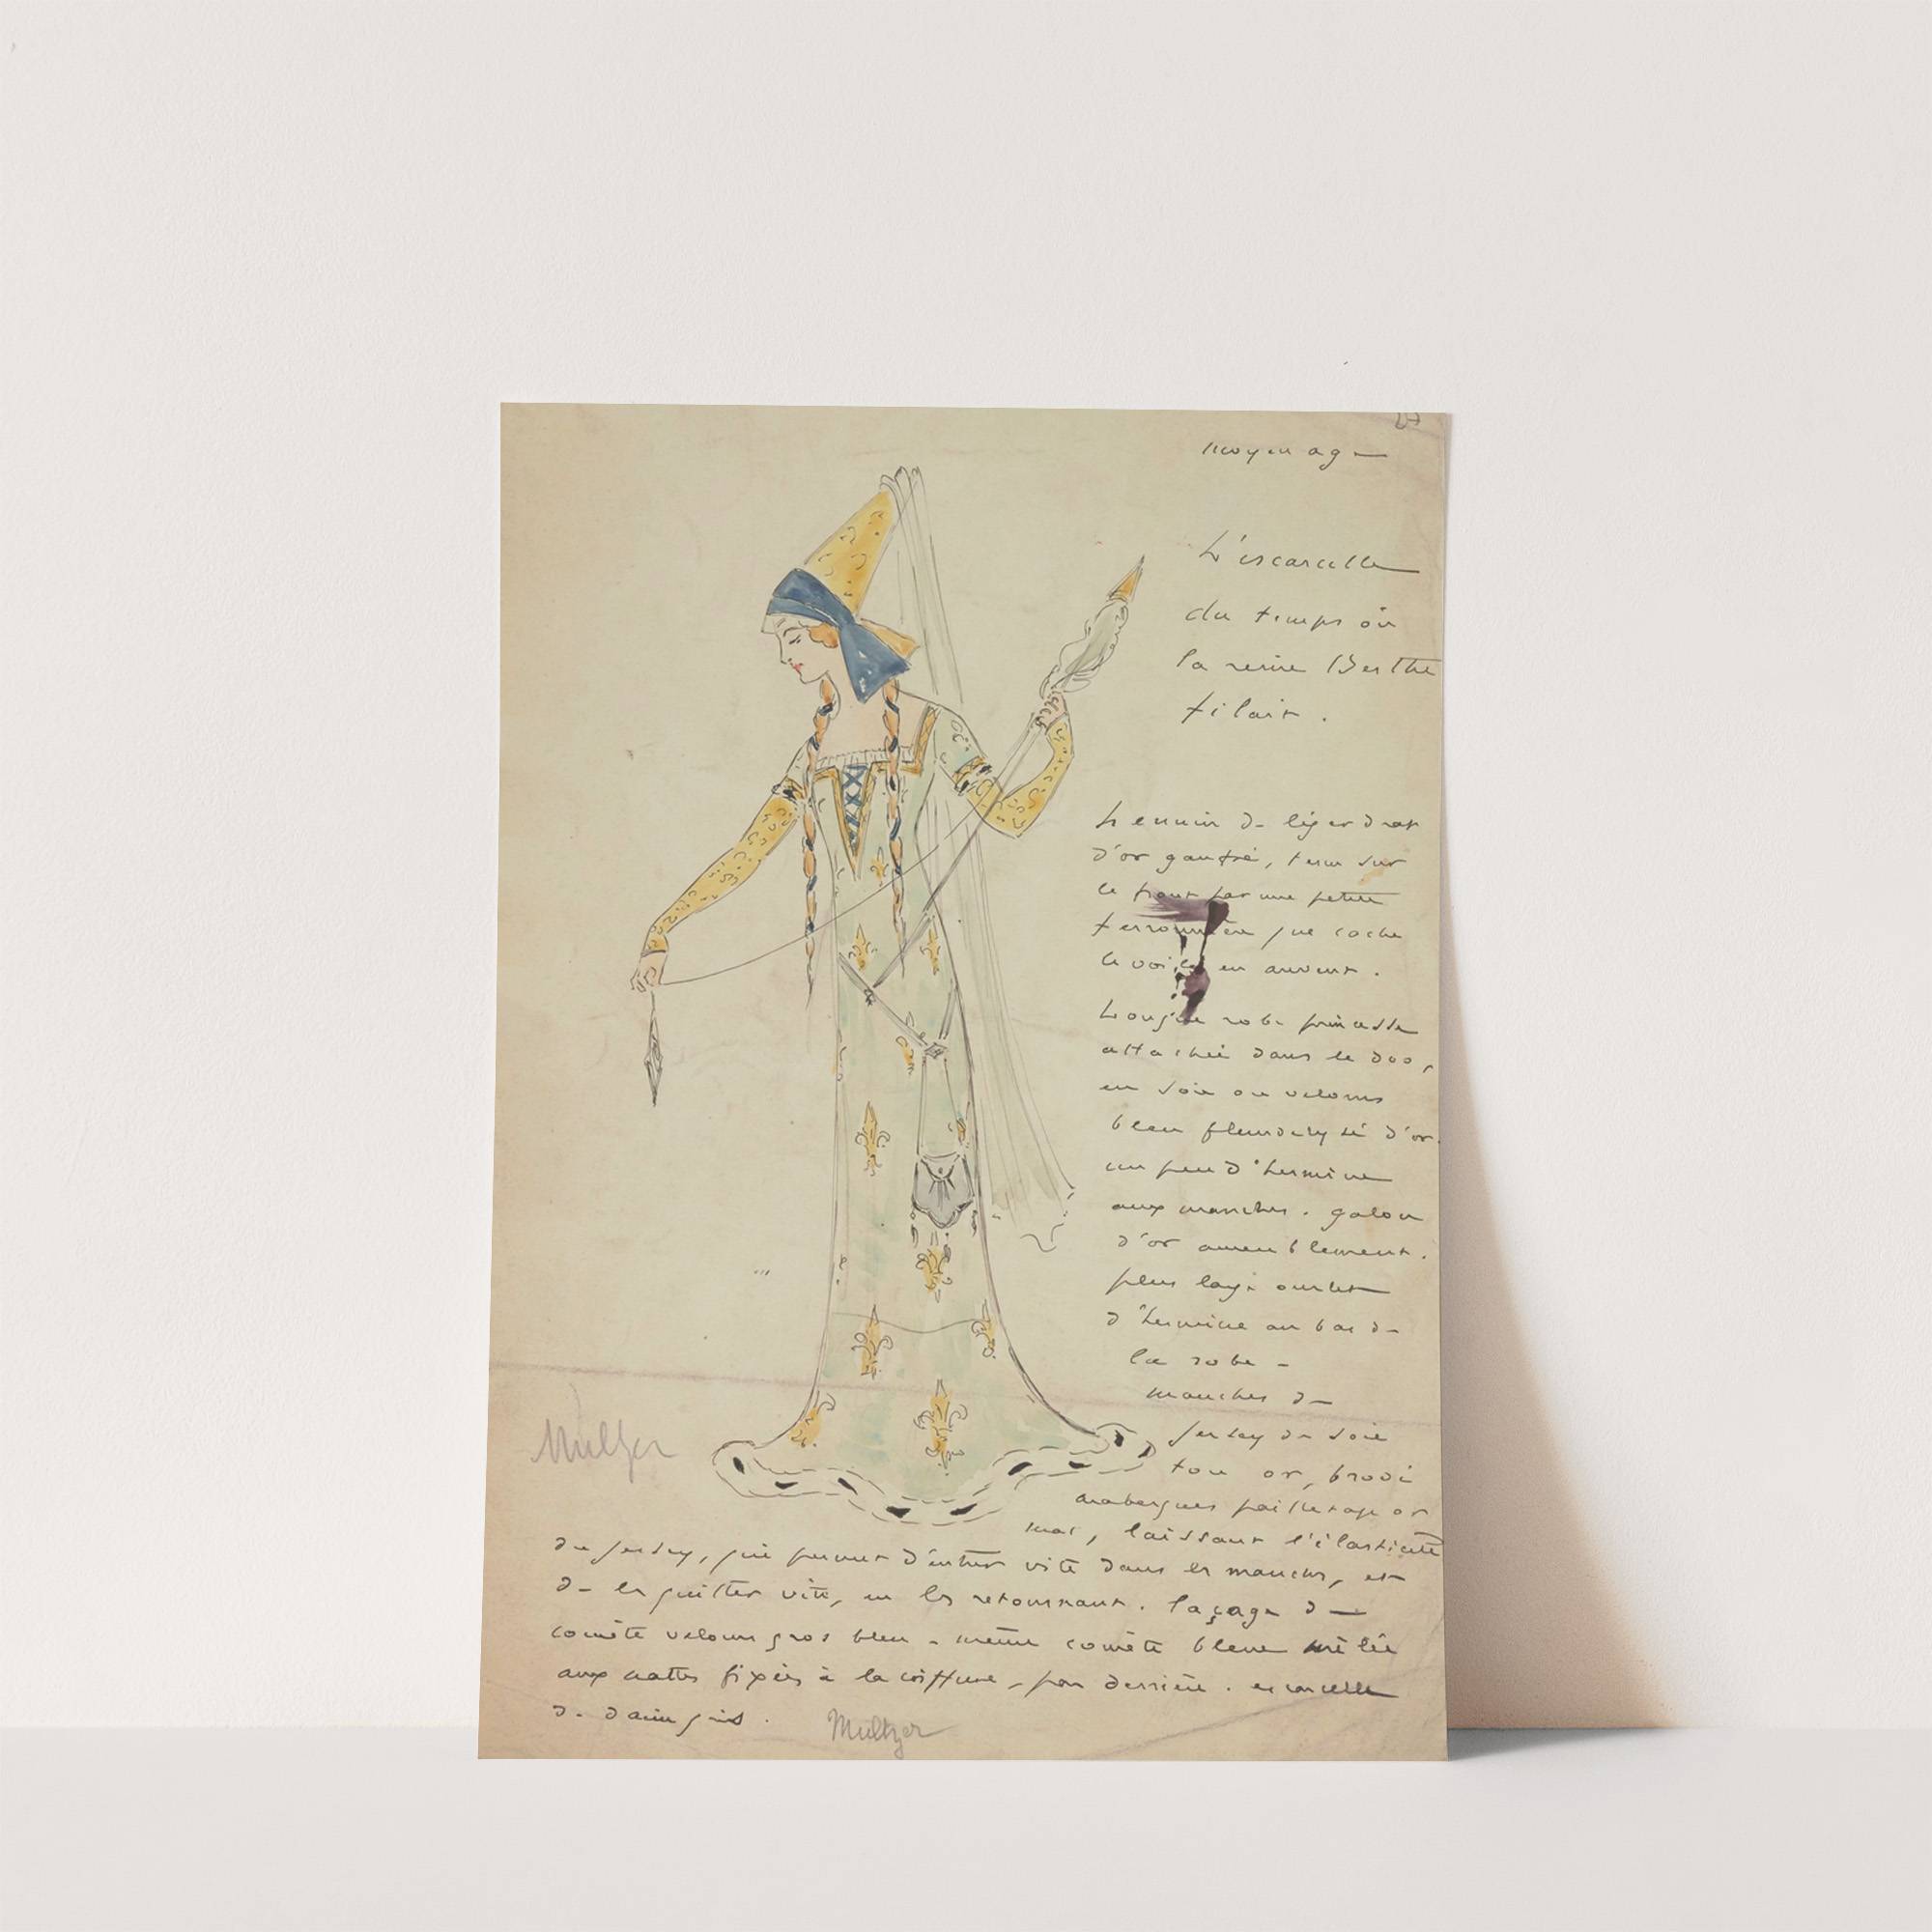 moyen age
L'escarcelle
du temps où
la reine Berthe
filait.
Hennin de léger drap
d'or gaufré, tenu sur
le front par une petite
ferronnière que cache
le voile en auvent.
Longue robe princesse
attachée dans le dos,
en soie ou velours
bleu fleurdelysé d'or.
un peu d'hermine
aux manches. galon
d'or ameublement.
plus large ourlet
d'hermine au bas de
la robe -
manches de
jersey de soie
ton or, brodé
arabesques pailletage or
mat, laissant l'élasticité
du jersey, qui permet d'entrer vite dans les manches, et
de les quitter vite, en les retournant. laçage de
comète velours gros bleu - même comète bleue mêlée
aux nattes fixées à la coiffure, par derrière. escarcelle
de daim gris.
Multzer
Multzer